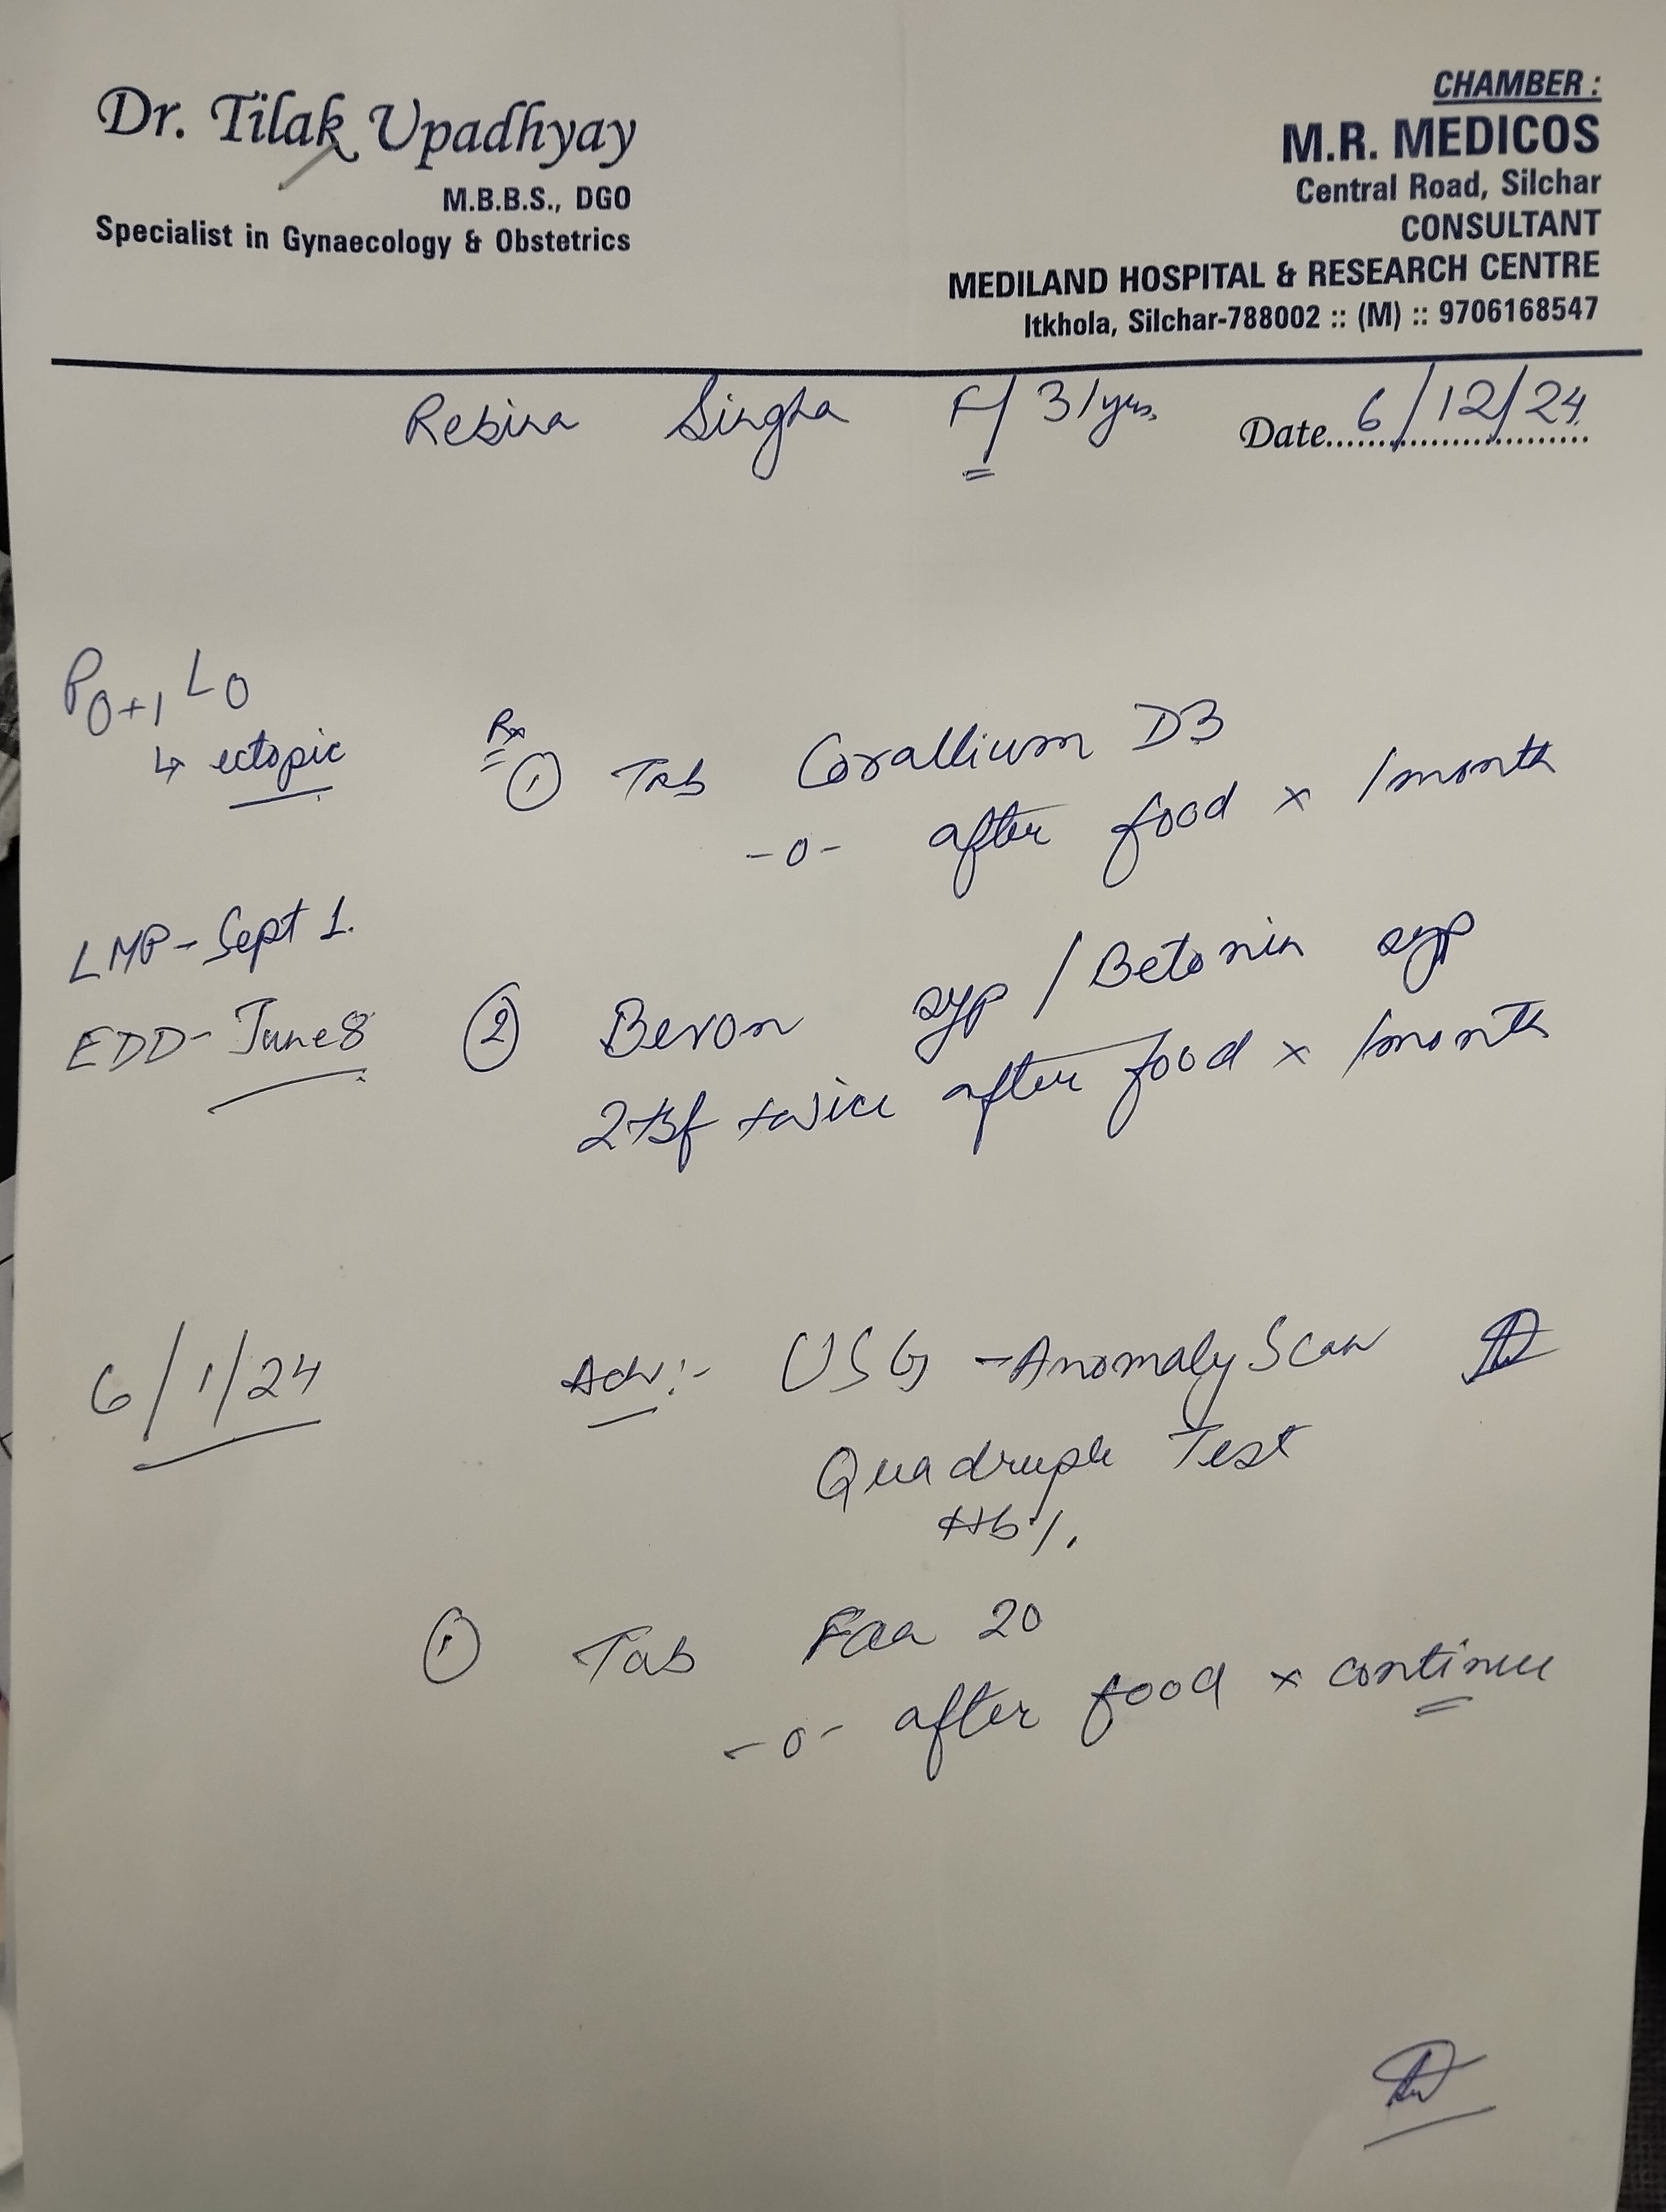 Dr. Tilak Upadhyay
M.B.B.S., DGO
Specialist in Gynaecology & Obstetrics
CHAMBER :
M.R. MEDICOS
Central Road, Silchar
CONSULTANT
MEDILAND HOSPITAL & RESEARCH CENTRE
Itkhola, Silchar-788002 :: (M) :: 9706168547
Rebina Singha F/ 31yrs. Date 6/12/24
P0+1 L0
↳ ectopic
Rx
① Tab Corallium D3
-0- after food x 1month
LMP - Sept 1.
EDD - June 8
② Bevon syp / Betonin syp
2tsf twice after food x 1month
6/1/24
Adv:- USG - Anomaly Scan
Quadruple Test
Hb%.
① Tab Faa 20
-0- after food x continue